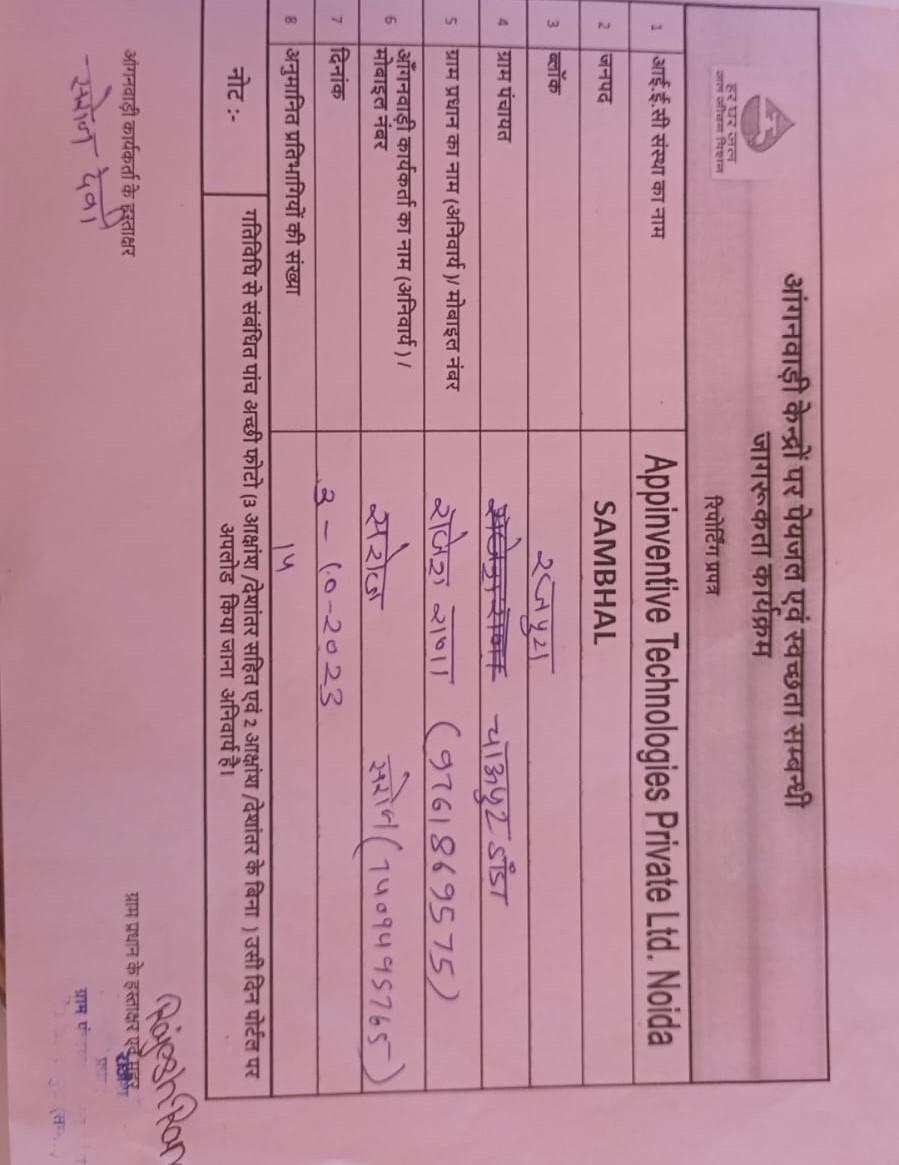 आंगनवाड़ी केन्द्रों पर पेयजल एवं स्वच्छता सम्बन्धी
जागरूकता कार्यक्रम
हर घर जल
जल जीवन मिशन
रिपोर्टिंग प्रपत्र
1 आई.ई.सी संस्था का नाम Appinventive Technologies Private Ltd. Noida
2 जनपद SAMBHAL
3 ब्लॉक रजपुरा
4 ग्राम पंचायत डाँडा
5 ग्राम प्रधान का नाम (अनिवार्य )/ मोबाइल नंबर राजेश राणा (9761869575)
6 आँगनवाड़ी कार्यकर्ता का नाम (अनिवार्य ) /
मोबाइल नंबर सरोज सरोज
7 दिनांक 3-10-2023
8 अनुमानित प्रतिभागियों की संख्या
नोट :- गतिविधि से संबंधित पांच अच्छी फोटो (3 आक्षांश /देशांतर सहित एवं 2 आक्षांश /देशांतर के बिना ) उसी दिन पोर्टल पर
अपलोड किया जाना अनिवार्य है।
आंगनवाड़ी कार्यकर्ता के हस्ताक्षर ग्राम प्रधान के हस्ताक्षर एवं मुहर
सरोज देवी Rajesh
ग्राम